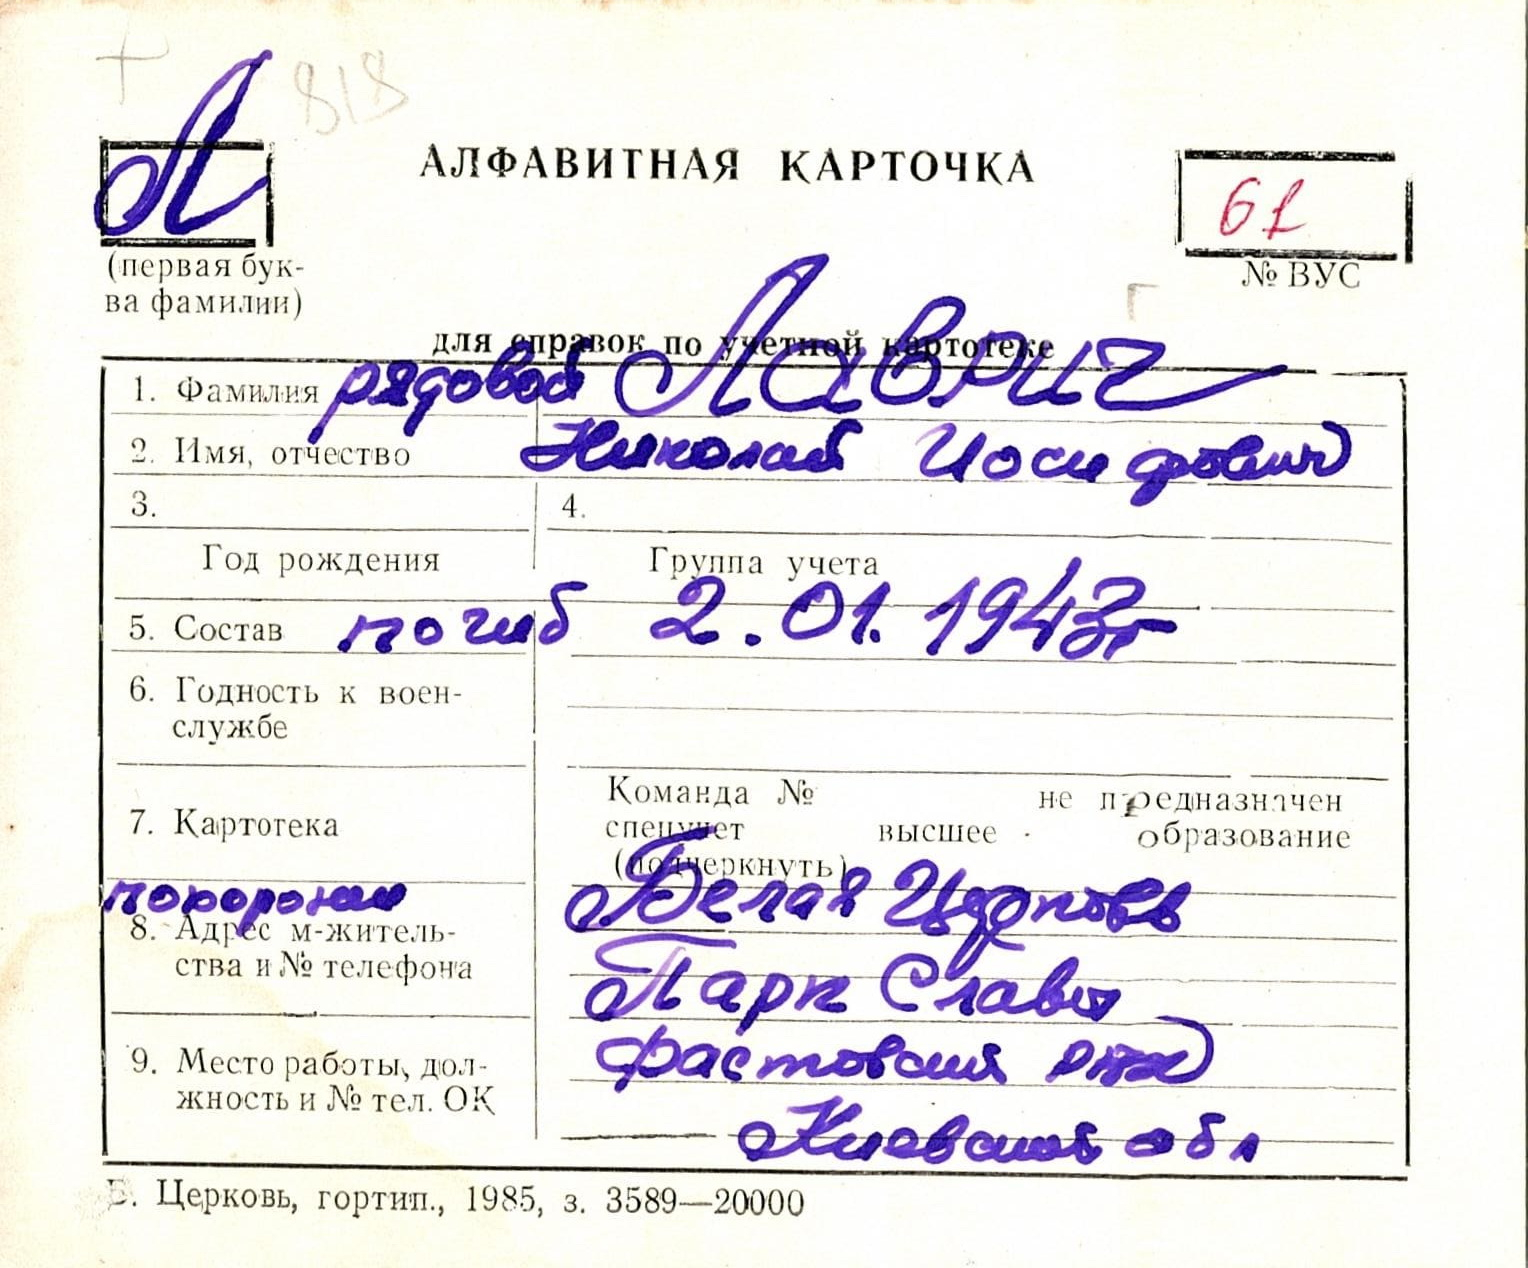 818
Л
АЛФАВИТНАЯ КАРТОЧКА
61
(первая бук-
ва фамилии)
№ ВУС
для справок по учетной картотеке
1. Фамилия рядовой Лаврич
2. Имя, отчество Николай Иосифович
3. 4.
Год рождения Группа учета
5. Состав погиб 2.01.1943г
6. Годность к воен-
службе
7. Картотека
Команда № не предназначен
спецучет высшее образование
(подчеркнуть)
похоронен Белая Церковь
8. Адрес м-житель-
ства и № телефона
Парк Славы
9. Место работы, дол-
жность и № тел. ОК
Фастовский
Киевской обл
Б. Церковь, гортип., 1985, з. 3589—20000